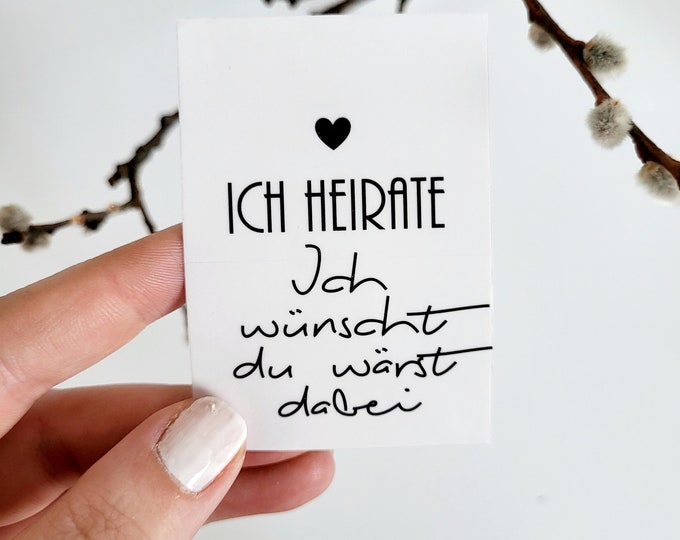 ICH HEIRATE
Ich
wünscht
du wärst
dabei